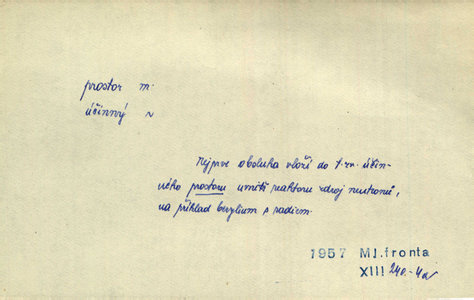 prostor m.
účinný
Nejprve obsluha vloží do t.zv. účin-
ného prostoru uvnitř reaktoru zdroj neutronů,
na příklad beryllium s radiem.
1957 Ml.fronta
XIII 240.-4